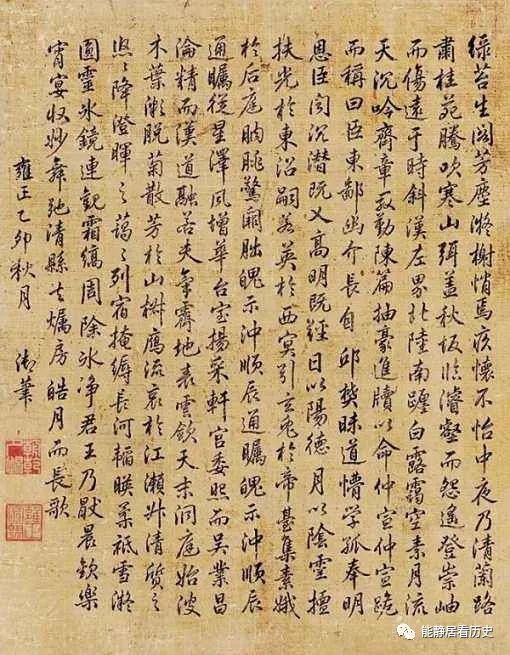 綠苔生閣芳塵凝榭悄焉疚懷不怡中夜乃清蘭路
肅桂苑騰吹寒山弭蓋秋坂臨濬壑而怨遙登崇岫
而傷遠于時斜漢左界北陸南躔白露靄空素月流
天沉吟齊章殷勤陳篇抽豪進牘以命仲宣仲宣跪
而稱曰臣東鄙幽介長自邱樊昧道懵學孤奉明
恩臣聞沉潛既义高明既經日以陽德月以陰靈擅
扶光於東沼嗣若英於西冥引玄兔於帝臺集素娥
於后庭朒朓警闕朏魄示沖順辰通矚魄示沖順辰
通矚從星澤風增華台室揚采軒宮委照而吳業昌
淪精而漢道融若夫氣霽地表雲斂天末洞庭始波
木葉漸脫菊散芳於山椒鴈流哀於江瀨升清質之
悠悠降澄暉之藹藹列宿掩縟長河韜暎柔祇雪凝
圓靈水鏡連觀霜縞周除冰淨君王乃厭晨歡樂
宵宴收妙舞弛清縣去燭房皓月而長歌
雍正乙卯秋月 御筆
能静居看历史